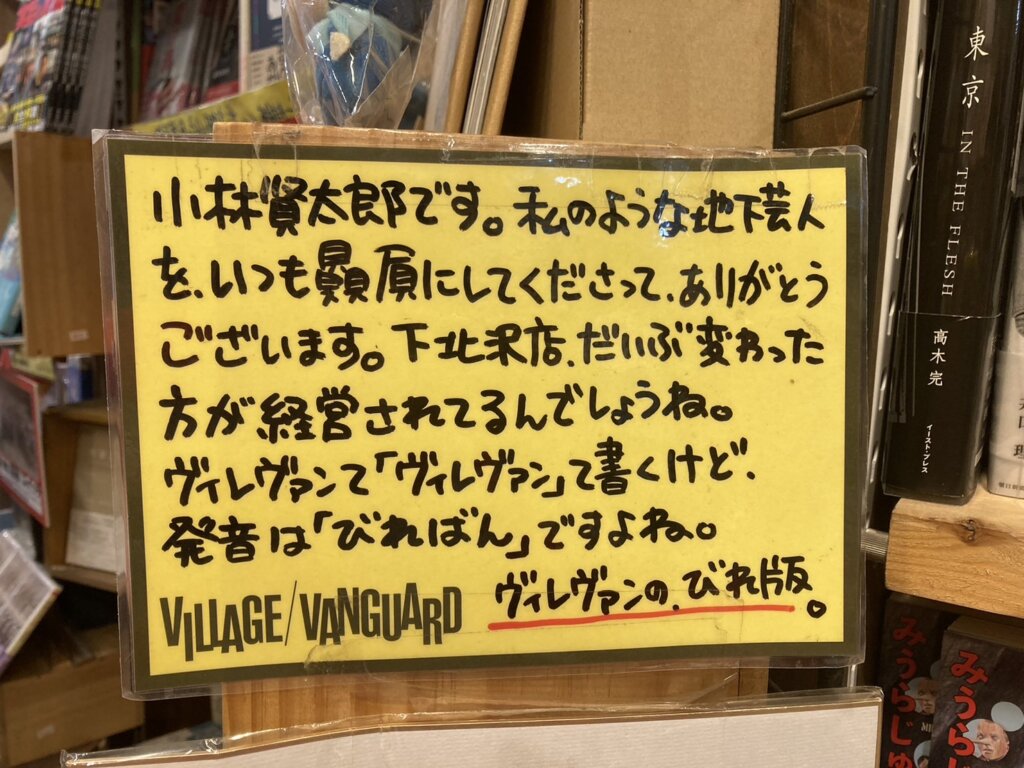 小林賢太郎です。私のような地下芸人
を、いつも贔屓にしてくださって、ありがとう
ございます。下北沢店、だいぶ変わった
方が経営されてるんでしょうね。
ヴィレヴァンて「ヴィレヴァン」て書くけど、
発音は「びればん」ですよね。
ヴィレヴァンの、びれ版。
VILLAGE/VANGUARD
東京 IN THE FLESH
高木 完
イースト・プレス
みうらじゅ
みうらじ